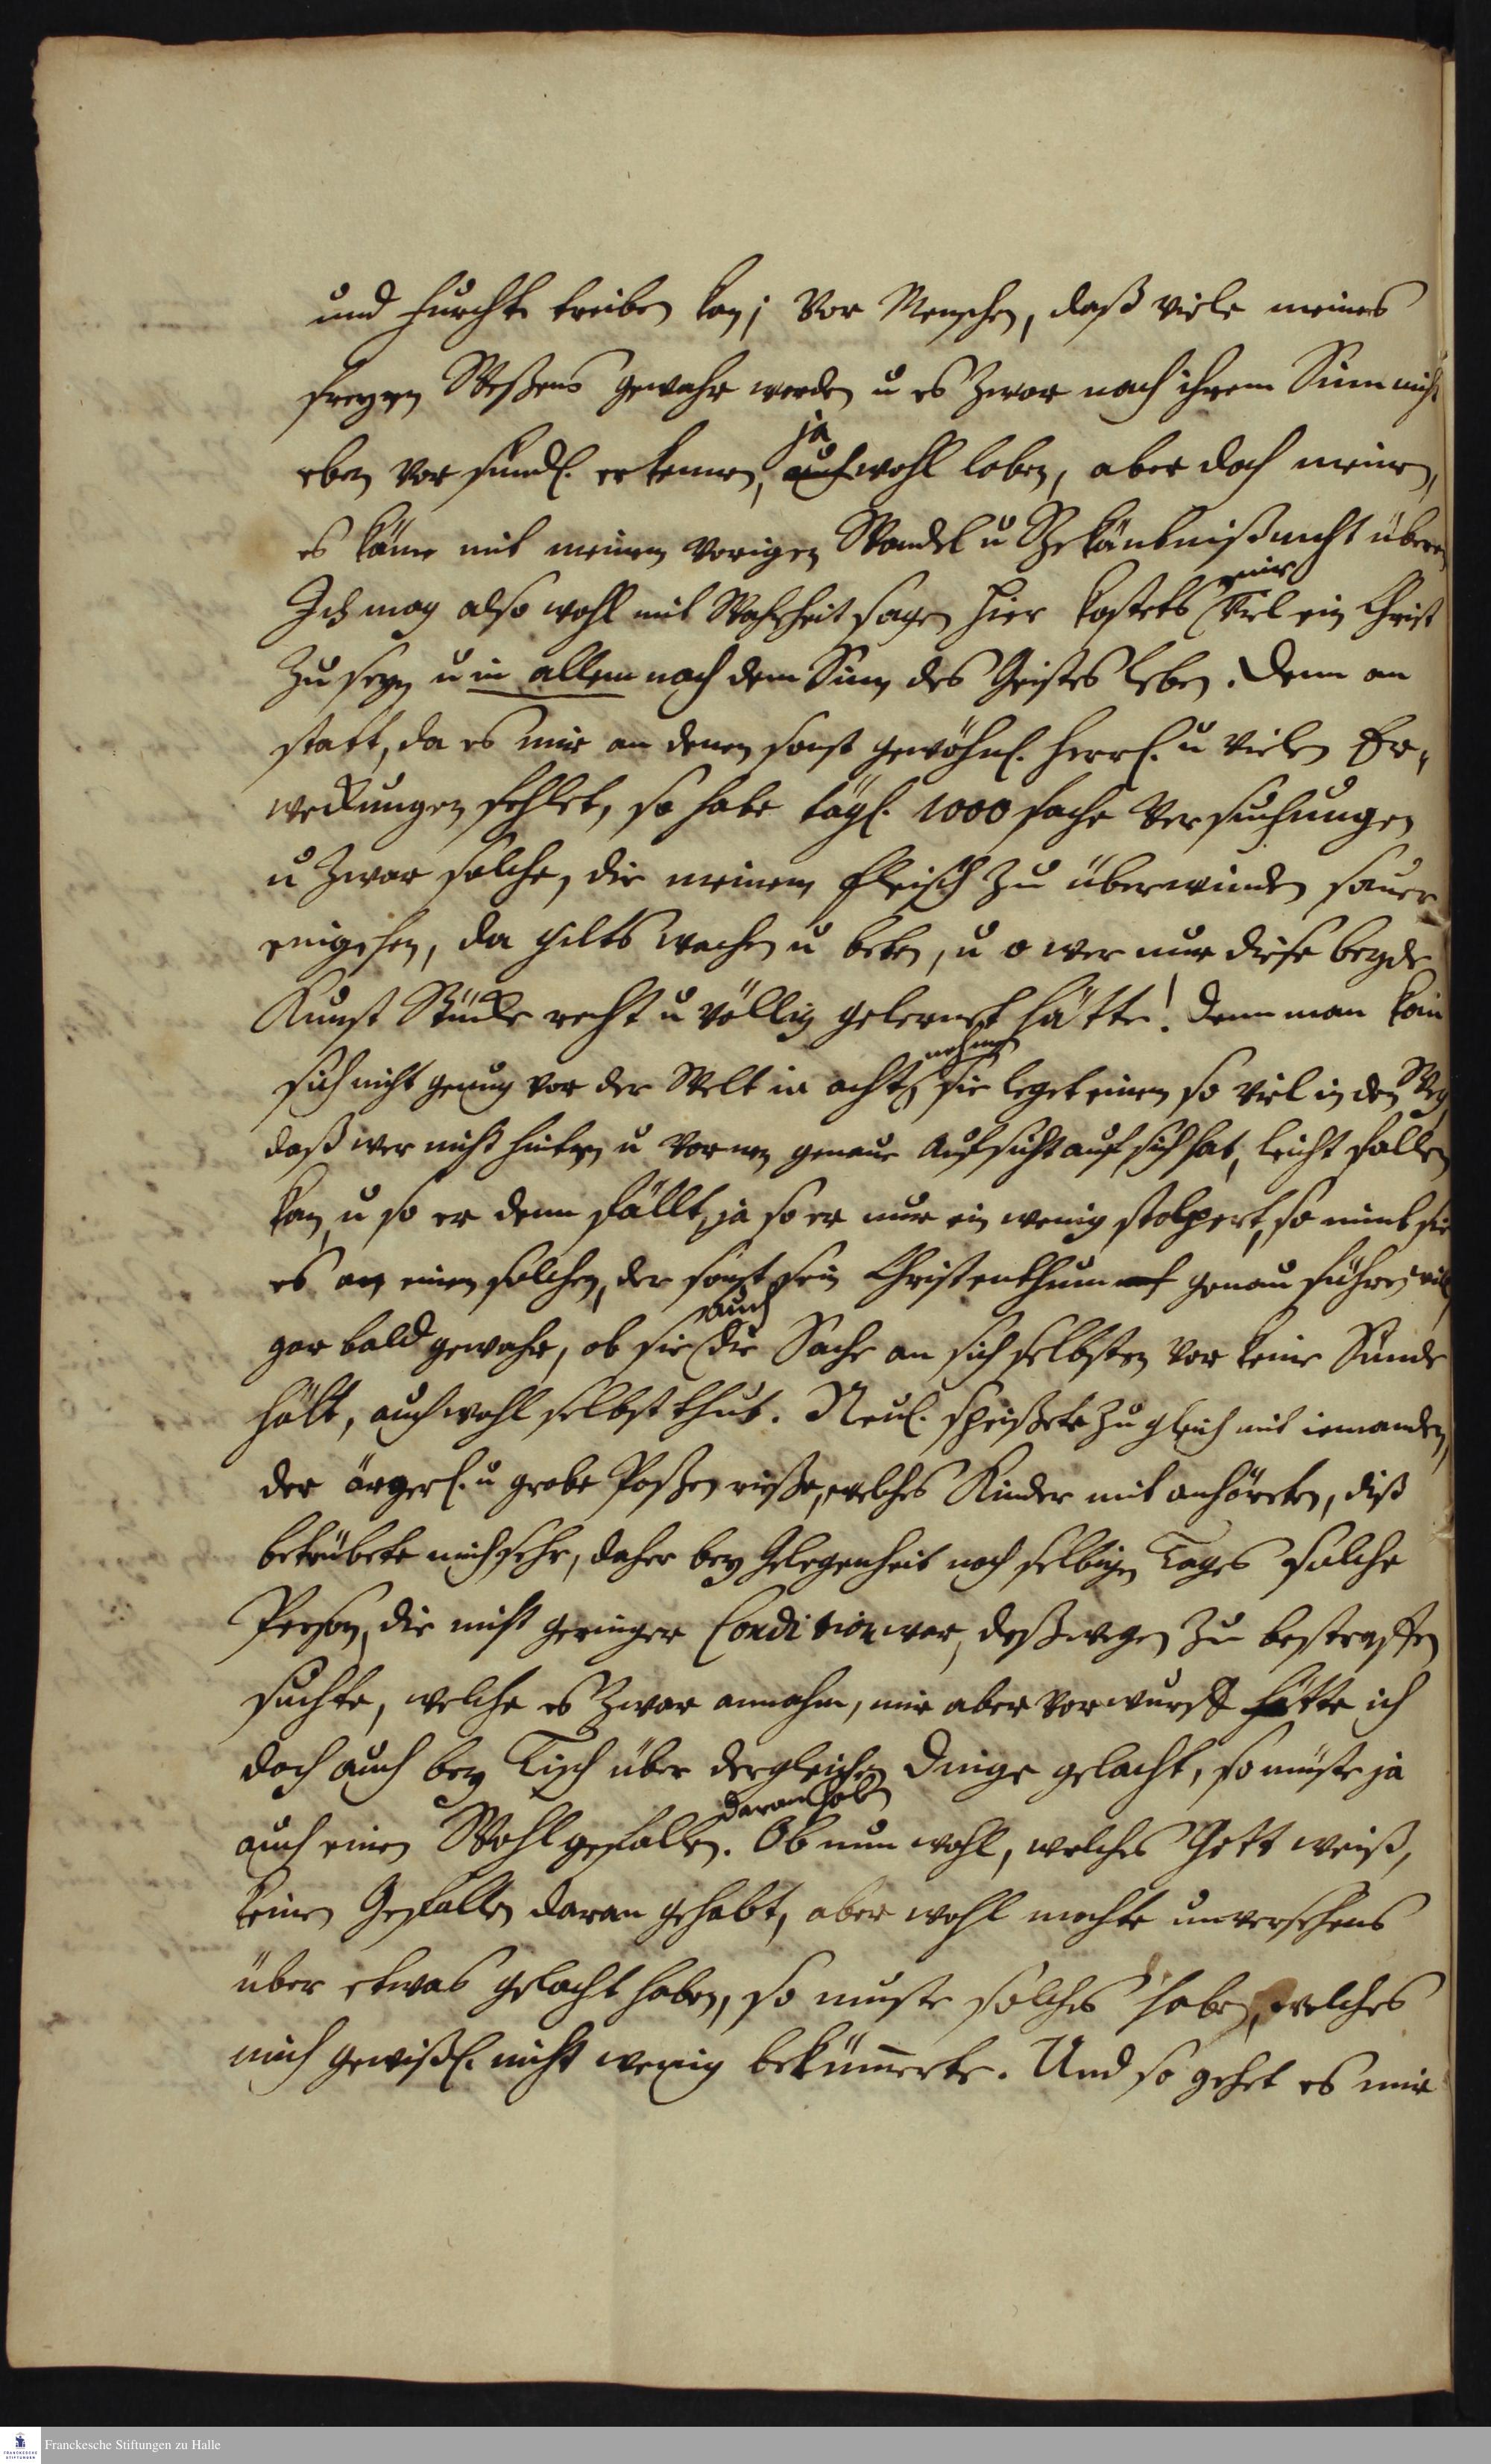 und furchte treiben kan; vor Menschen, daß viele meines
freyen Weßens gewahr werden u es zwar nach ihrem Sinn nicht
eben vor sündl. erkennen, ja auch wohl loben, aber doch meinen,
es käme mit meinem vorigen Wandel u Bekäntniß nicht überein
Ich mag also wohl mit Wahrheit sagen hier kostets mir viel ein Christ
zu seyn u in allem nach dem Sinn des Geistes leben. Denn an
statt, da es mir an denen sonst gewöhnl. herrl. u vielen Er-
weckungen fehlet, so habe tägl. 1000 fache Versuchungen
u zwar solche, die meinem Fleisch zu überwinden sauer
eingehen, da gilts wachen u beten, u o wer nur diese beyde
Kunst Stücke recht u völlig gelernet hätte! Denn man kan
sich nicht genug vor der Welt in acht nehmen sie leget einen so viel in den Weg
daß wer nicht hinten u vornen genaue Aufsicht auf sich hat, leicht fallen
kan, u so er denn fällt, ja so er nur ein wenig stolpert, so nimt sie
es an einen solchen, der sonst sein Christenthum genau führen will
gar bald gewahr, ob sie auch die Sache an sich selbsten vor keine Sünde
hält, auch wohl selbst thut. Neul. speißete zugleich mit iemanden,
der ärgerl. u grobe Poßen riße, welches Kinder mit anhöreten, diß
betrübete mich sehr, daher bey Gelegenheit noch selbigen Tages solche
Person, die nicht geringer Condition war, deßwegen zu bestraffen
suchte, welche es zwar annahm, mir aber vorwurff hätte ich
doch auch bey Tisch über dergleichen Dinge gelacht, so müste ja
auch einen Wohlgefallen daran haben. Ob nun wohl, welches Gott weiß,
keinen Gefallen daran gehabt, aber wohl mochte unversehens
über etwas gelacht haben, so muste solches haben, welches
mich gewißl. nicht wenig bekümerte. Und so gehet es mir
Franckesche Stiftungen zu Halle